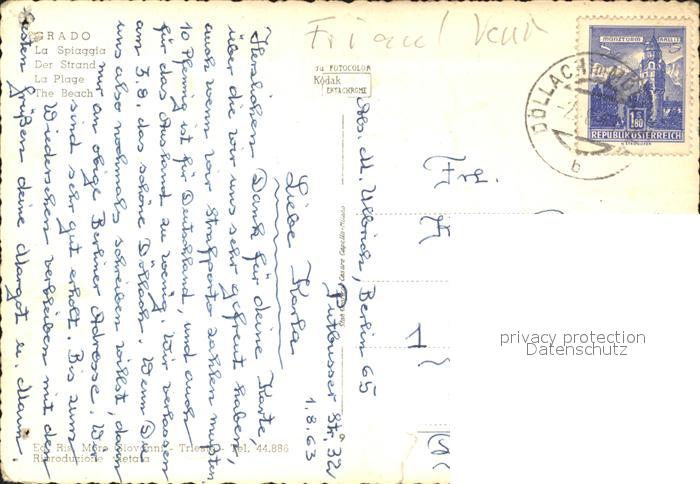 Friaul Vene
GRADO
La Spiaggia
Der Strand
La Plage
The Beach
FOTOCOLOR
Kodak
EKTACHROME
MÜNZTURM HALL
1 S 80
REPUBLIK ÖSTERREICH
DÖLLACH
b
Abs. M. Ulbrich, Berlin 65
Putbusser Str. 32
1.8.63
Liebe Karla
Herzlichen Dank für deine Karte,
über die wir uns sehr gefreut haben,
auch wenn wir Strafporto zahlen mußten
10 Pfennig ist für Deutschland, und auch
für das Ausland zu wenig. Wir verlassen
am 3.8. das schöne Döllach. Wenn Du
uns also nochmals schreiben willst, dann
nur an obige Berliner Adresse. Wir
sind sehr gut erholt. Bis zum
Wiedersehen verbleiben mit den
besten Grüßen deine Margot u. Mann.
Ed. Ris. Mare Giovanni - Trieste - Tel. 44.886
Riproduzione vietata
privacy protection
Datenschutz